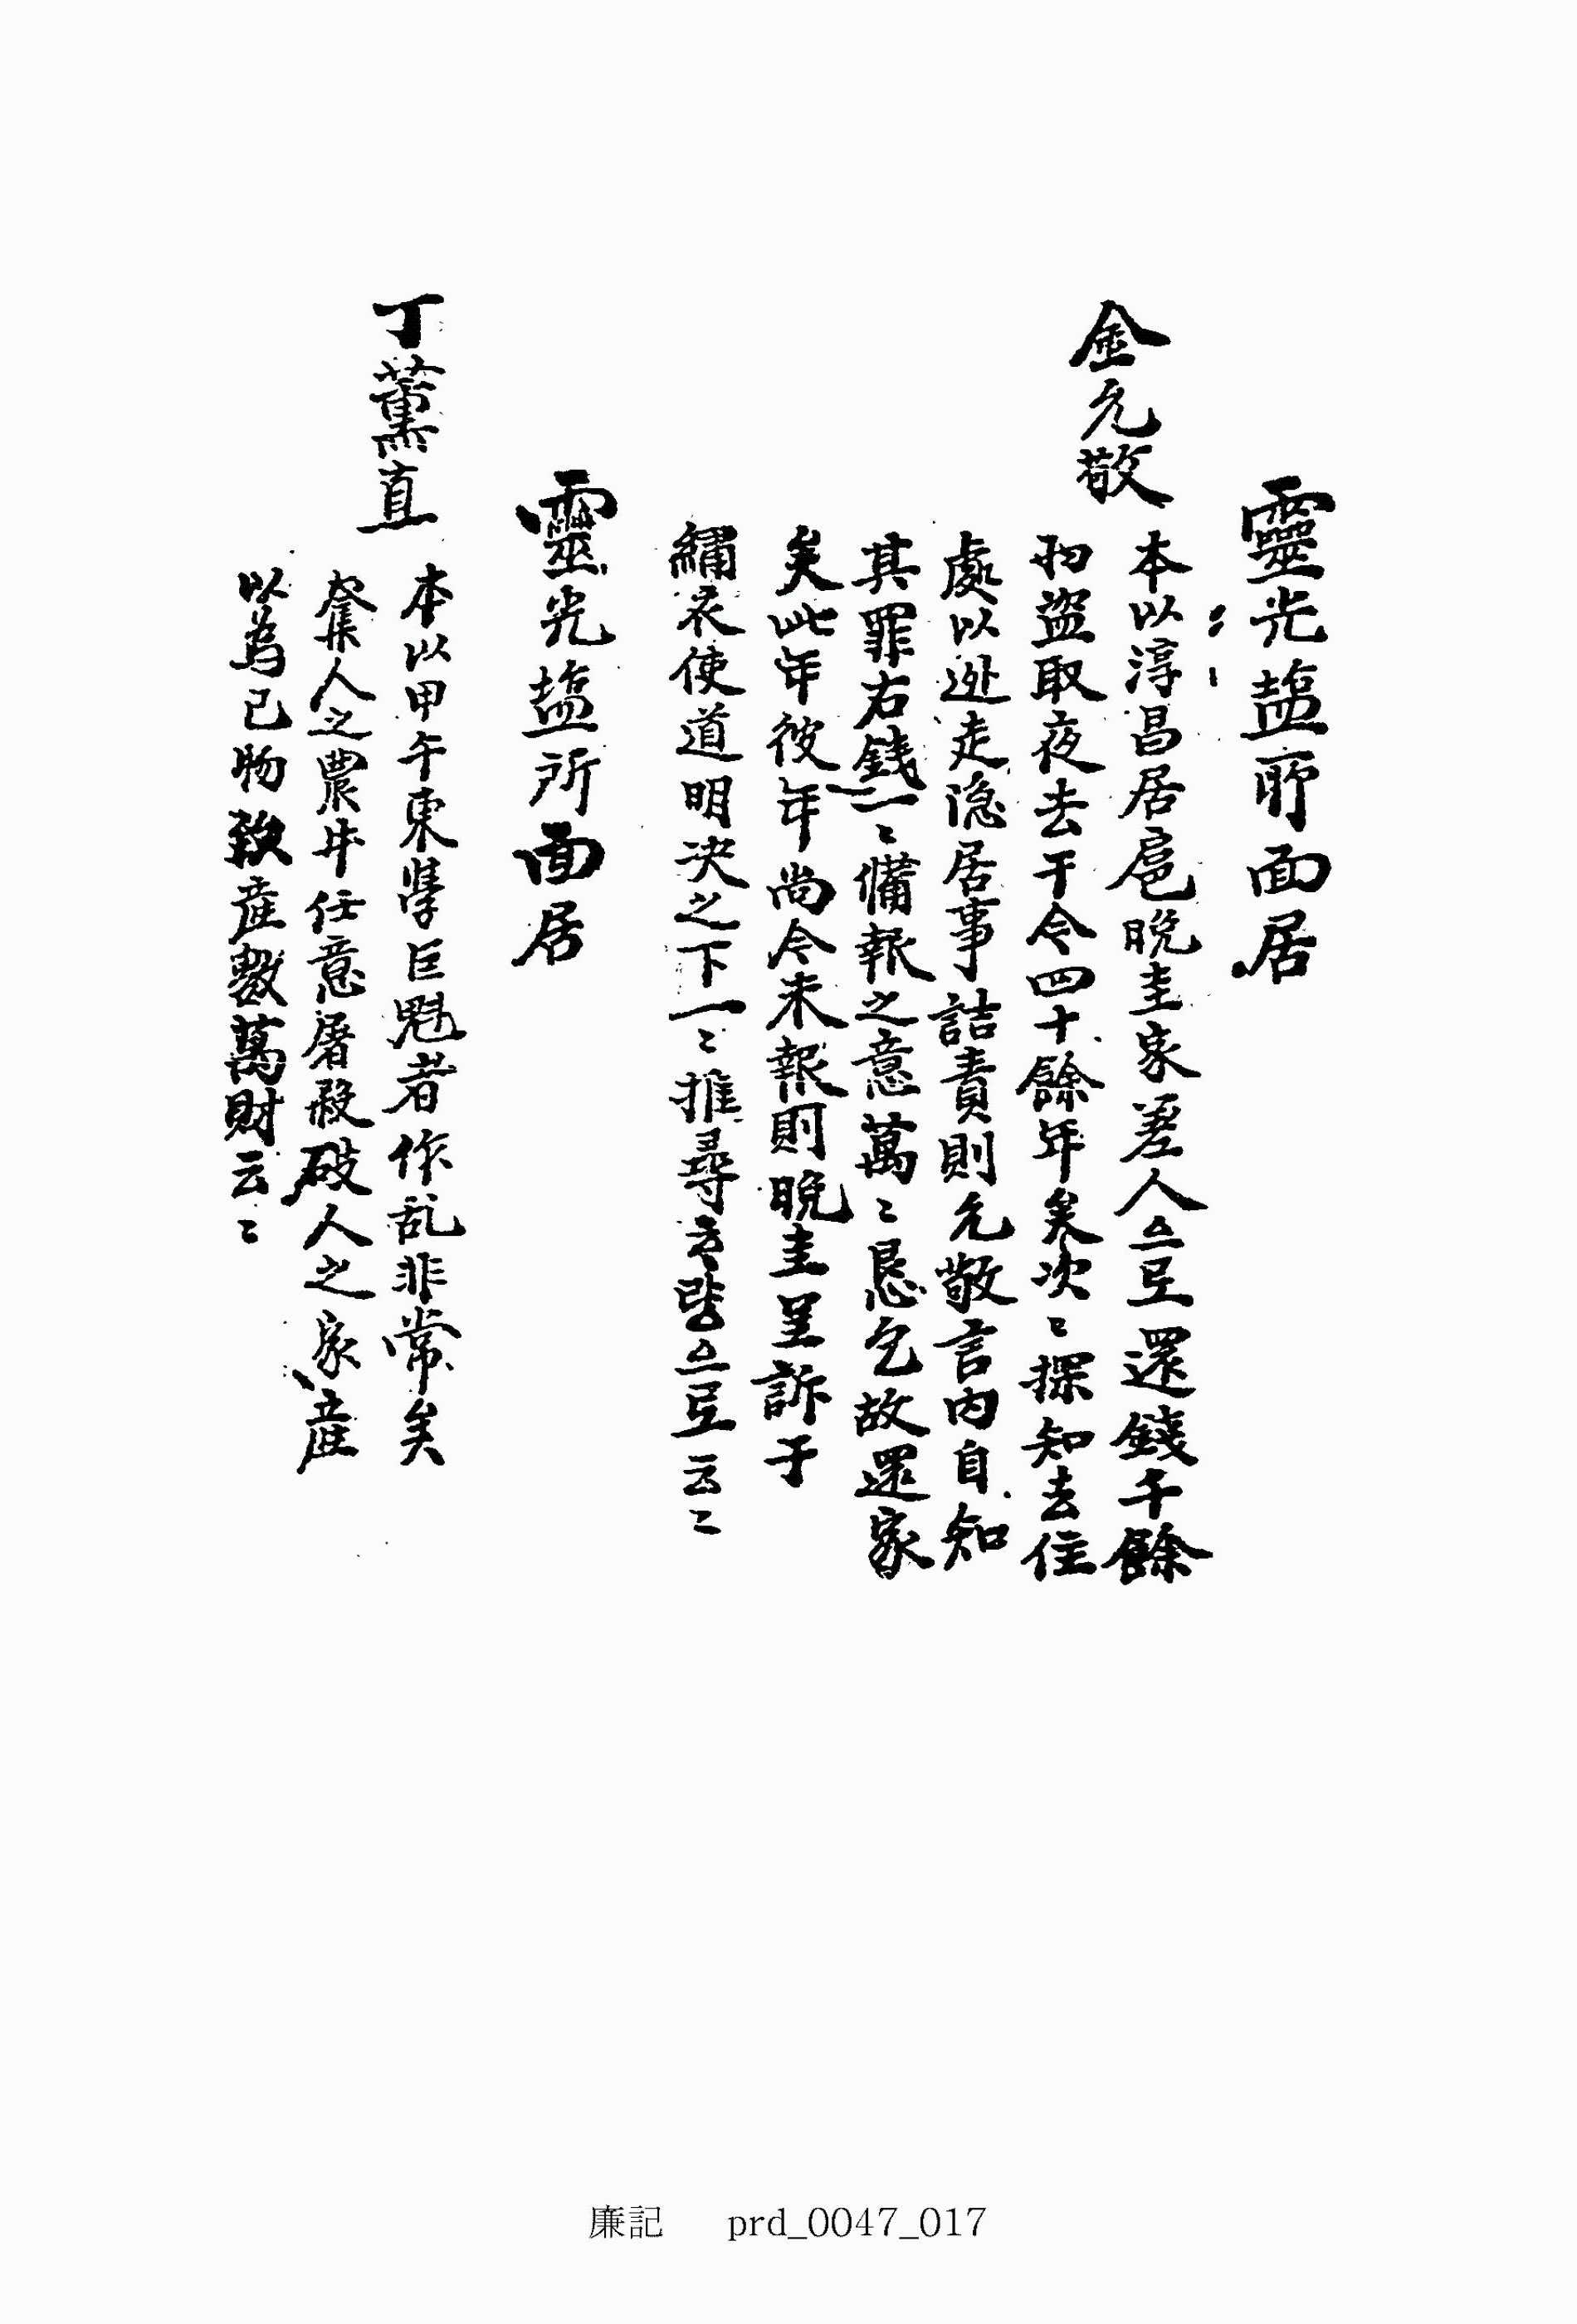 靈光塩所面居
金允敬
本以淳昌居扈晩圭家差人亠豆還錢千餘
糿盜取夜去于今四十餘年矣次〻探知去住
處以迯走隐居事詰責則允敬言內自知
其罪右錢一〻備報之意萬〻恳乞故還家
矣此年彼年尙今未報則晩圭呈訴于
繡衣使道明决之下一〻推尋亠豆云〻
靈光塩所面居
丁薰直
本以甲午東學巨魁者作乱非常矣
奪人之農牛任意屠殺破人之家産
以爲己物致産數萬財云〻
廉記 prd_0047_017